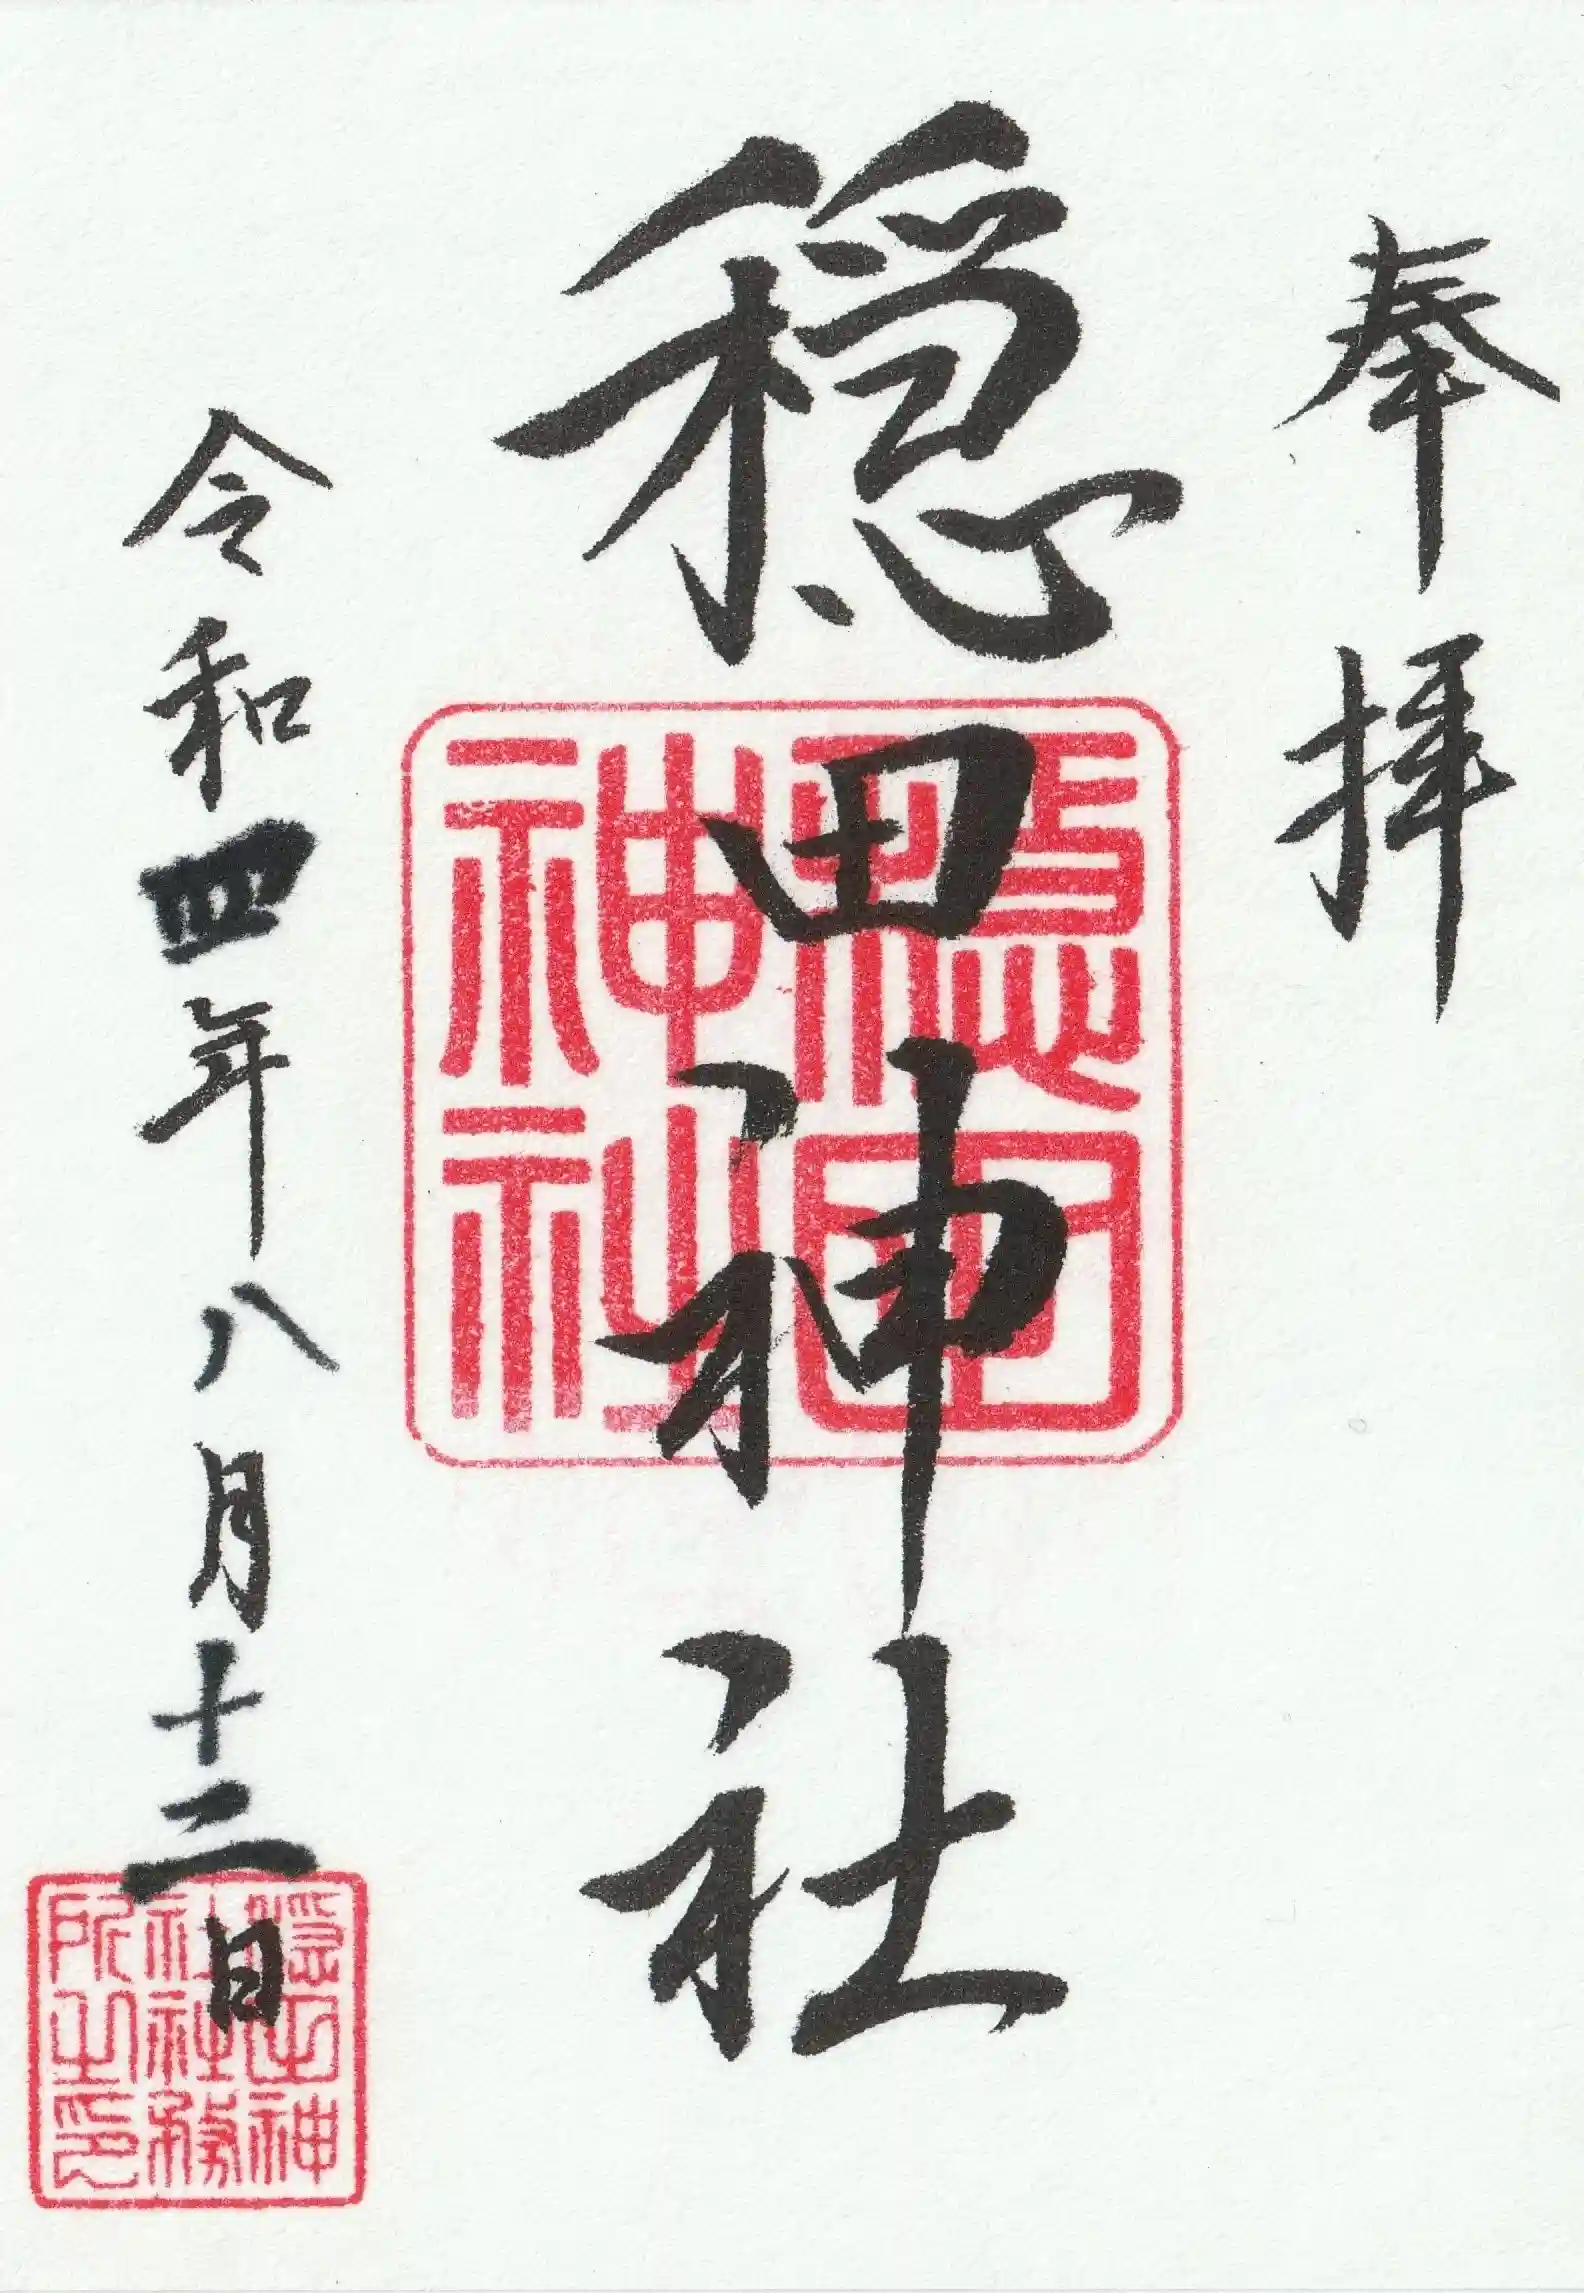 奉拝
穏田神社
穏田
神社
令和四年八月十二日
穏田神
社社務
所之印